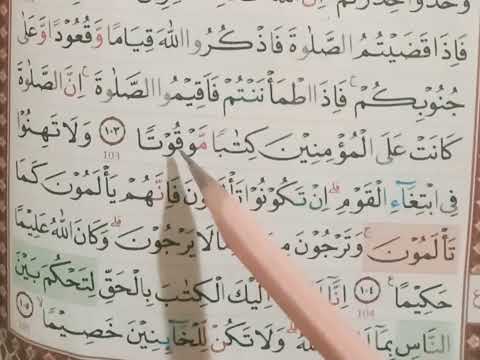 وَخُذُوْا حِذْرَكُمْ
فَاِذَا قَضَيْتُمُ الصَّلٰوةَ فَاذْكُرُوا اللّٰهَ قِيَامًا وَّقُعُوْدًا وَّعَلٰى
جُنُوْبِكُمْ ۚ فَاِذَا اطْمَأْنَنْتُمْ فَاَقِيْمُوا الصَّلٰوةَ ۚ اِنَّ الصَّلٰوةَ
كَانَتْ عَلَى الْمُؤْمِنِيْنَ كِتٰبًا مَّوْقُوْتًا ١٠٣ وَلَا تَهِنُوْا
103
فِى ابْتِغَاۤءِ الْقَوْمِ ۗ اِنْ تَكُوْنُوْا فَاِنَّهُمْ يَأْلَمُوْنَ كَمَا
تَأْلَمُوْنَ ۚ وَتَرْجُوْنَ مَا لَا يَرْجُوْنَ ۗ وَكَانَ اللّٰهُ عَلِيْمًا
حَكِيْمًا ١٠٤ اِنَّآ اِلَيْكَ الْكِتٰبَ بِالْحَقِّ لِتَحْكُمَ بَيْنَ
104
النَّاسِ بِمَآ اللّٰهُ ۗ وَلَا تَكُنْ لِّلْخَاۤىِٕنِيْنَ خَصِيْمًا ۙ ١٠٥